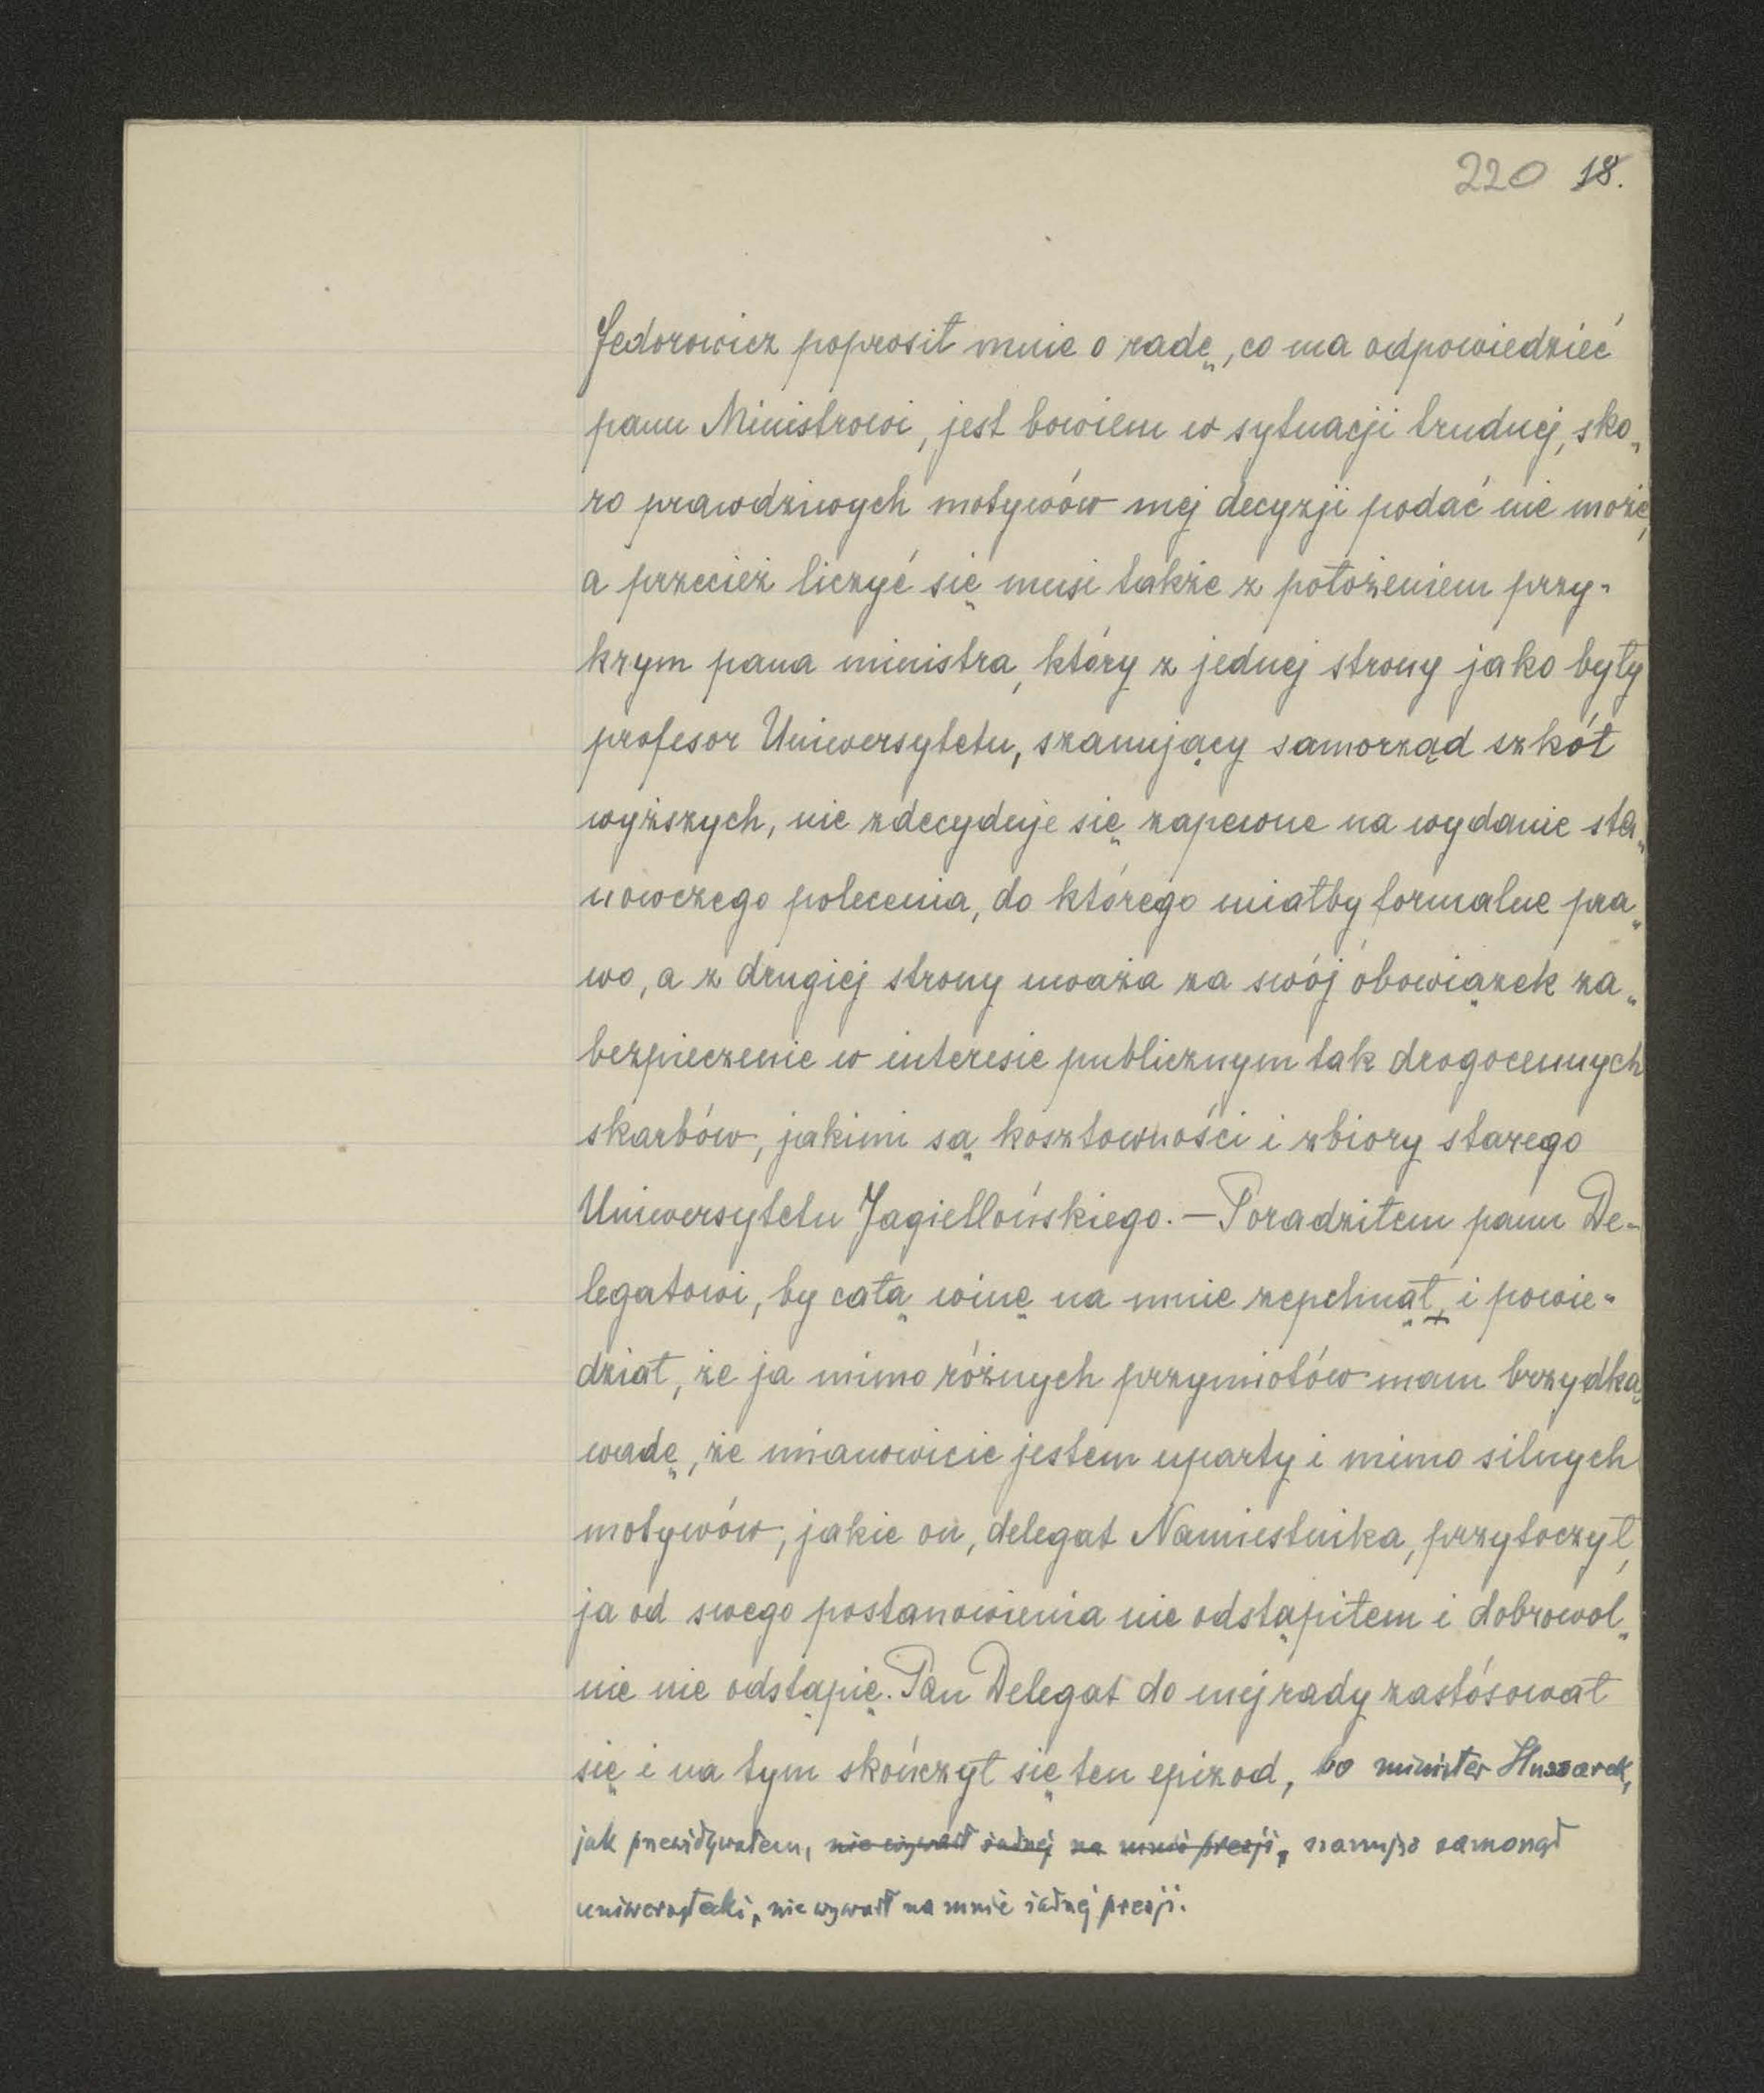 220 18.
Fedorowicz poprosił mnie o radę, co ma odpowiedzieć
panu Ministrowi, jest bowiem w sytuacji trudnej, sko„
ro prawdziwych motywów mej decyzji podać nie może,
a przecież liczyć się musi także z położeniem przy-
krym pana ministra, który z jednej strony jako były
profesor Uniwersytetu, szanujący samorząd szkół
wyższych, nie zdecyduje się zapewne na wydanie sta„
nowczego polecenia, do którego miałby formalne pra„
wo, a z drugiej strony uważa za swój obowiązek za„
bezpieczenie w interesie publicznym tak drogocennych
skarbów, jakimi są kosztowności i zbiory starego
Uniwersytetu Jagiellońskiego. — Poradziłem panu De-
legatowi, by całą winę na mnie zepchnął, i powie-
dział, że ja mimo różnych przymiotów mam brzydką
wadę, że mianowicie jestem uparty i mimo silnych
motywów, jakie on, delegat Namiestnika, przytoczył,
ja od swego postanowienia nie odstąpiłem i dobrowol„
nie nie odstąpię. Pan Delegat do mej rady zastósował
się i na tym skończył się ten epizod, bo minister Hussarek,
jak przewidywałem, nie wywarł żadnej na mnie presji, szanując samorząd
uniwersytecki, nie wywarł na mnie żadnej presji.